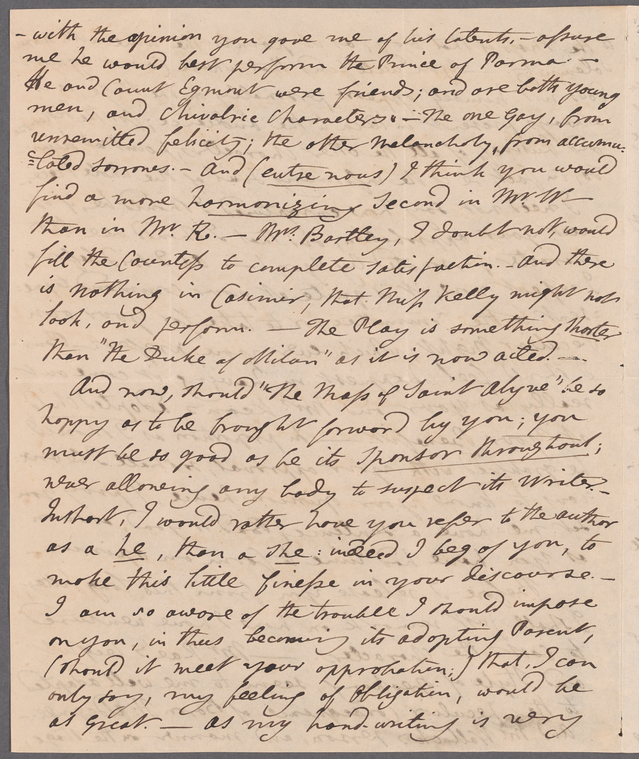 - with the opinion you gave me of his talents, - assure
me he would best perform the Prince of Parma. -
He and Count Egmont were friends; and are both young
men, and Chivalric Characters: - The one Gay, from
unremitted felicity; the other Melancholy, from accumu-
=lated sorrows. - And (entre nous) I think you would
find a more harmonizing Second in Mr. W-
than in Mr. R. - Mrs. Bartley, I doubt not, would
fill the Countess to complete satisfaction. - And there
is nothing in Casimir, that Miss Kelly might not
look, and perform. - The Play is something shorter
than "the Duke of Milan" as it is now acted. -
And now, should "The Mass of Saint Alyve" be so
happy as to be brought forward by you; you
must be so good as be its sponsor throughout;
never allowing any body to suspect its Writer. -
In short, I would rather have you refer to the author
as a he, than a she: indeed I beg of you, to
make this little finesse in your discourse. -
I am so aware of the trouble I should impose
on you, in thus becoming its adopting Parent,
(should it meet your approbation;) that, I can
only say, my feeling of Obligation, would be
as great. - as my hand-writing is very